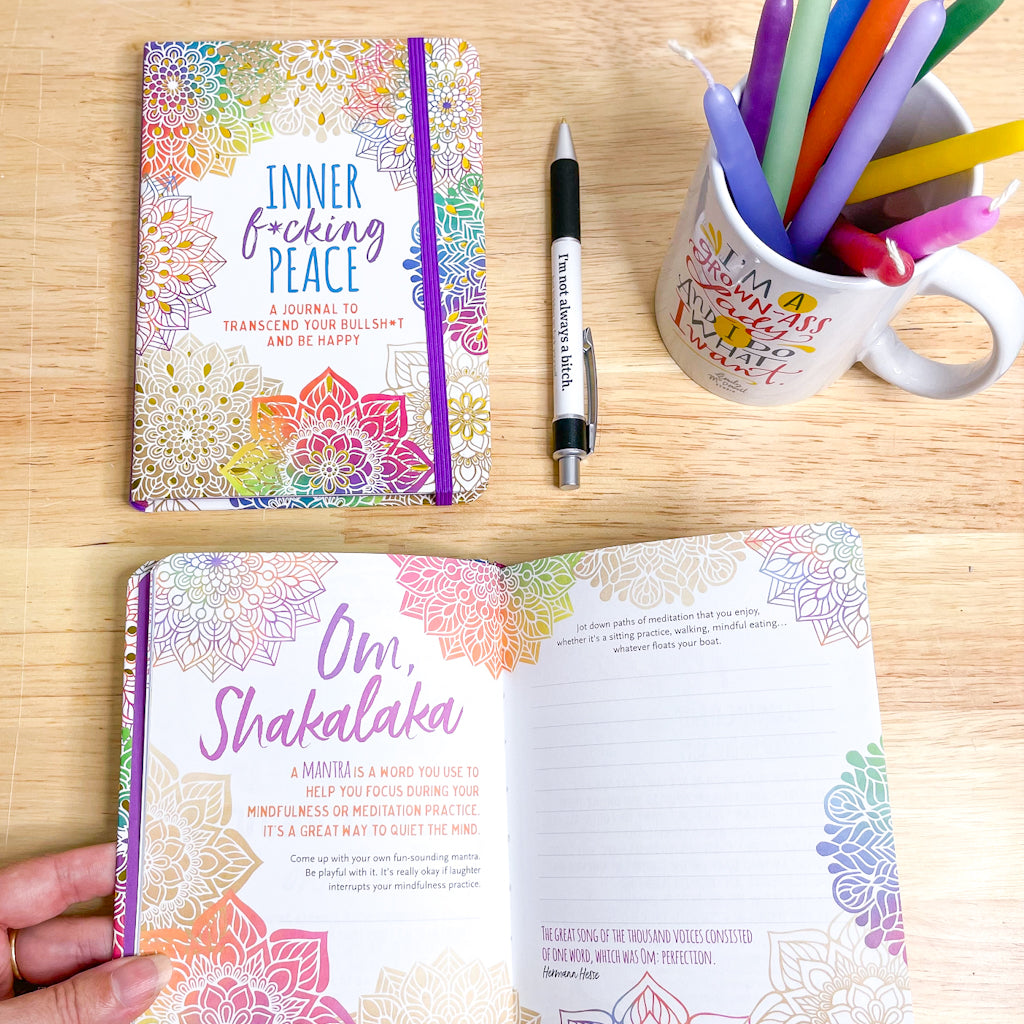 INNER
f*cking
PEACE
A JOURNAL TO
TRANSCEND YOUR BULLSH*T
AND BE HAPPY
I'm not always a bitch.
I'M A
GROWN-ASS
Lady
AND I DO
WHAT
I want.
Om,
Shakalaka
A MANTRA IS A WORD YOU USE TO
HELP YOU FOCUS DURING YOUR
MINDFULNESS OR MEDITATION PRACTICE.
IT'S A GREAT WAY TO QUIET THE MIND.
Come up with your own fun-sounding mantra.
Be playful with it. It's really okay if laughter
interrupts your mindfulness practice.
Jot down paths of meditation that you enjoy,
whether it's a sitting practice, walking, mindful eating...
whatever floats your boat.
THE GREAT SONG OF THE THOUSAND VOICES CONSISTED
OF ONE WORD, WHICH WAS OM: PERFECTION.
Hermann Hesse